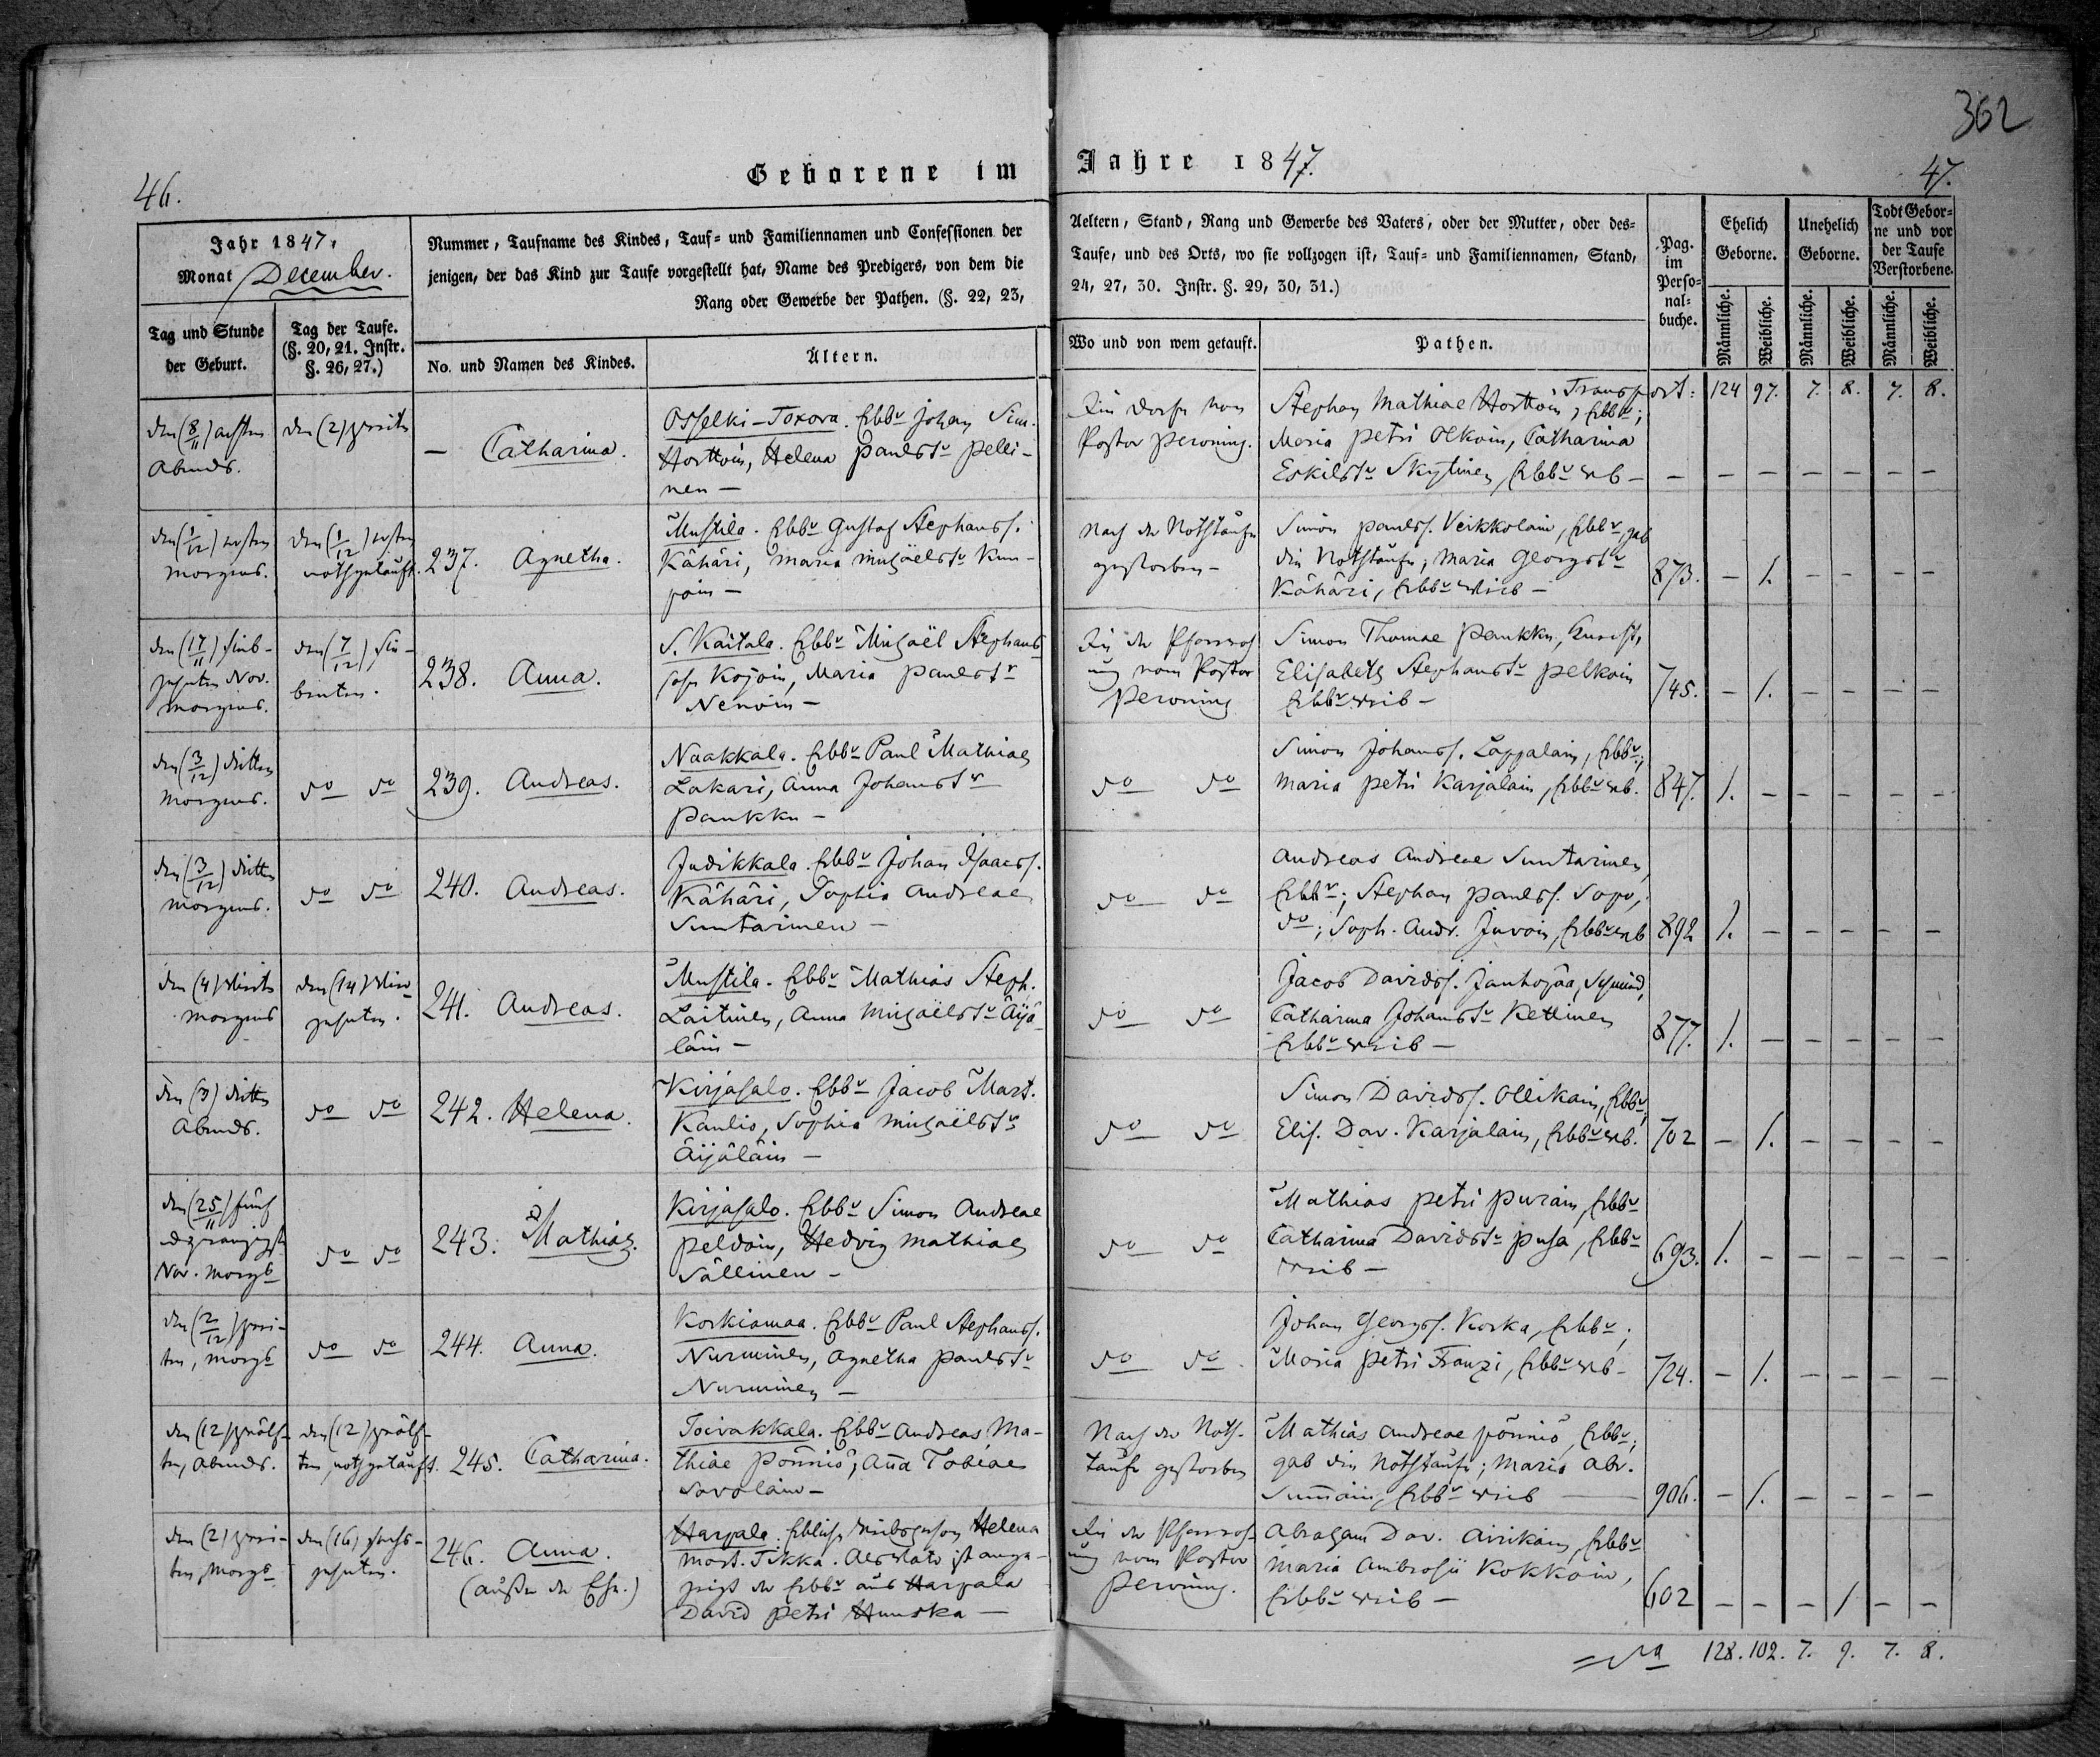 362
46.
Geborene im Jahre 1847.
47.
Jahr 1847.
Monat December.
Tag und Stunde
der Geburt.
Tag der Taufe.
(§. 20, 21. Instr.
§. 26, 27.)
Nummer, Taufname des Kindes, Tauf- und Familiennamen und Confessionen der
jenigen, der das Kind zur Taufe vorgestellt hat, Name des Predigers, von dem die
Rang oder Gewerbe der Pathen. (§. 22, 23,
No. und Namen des Kindes.
Ältern.
Aeltern, Stand, Rang und Gewerbe des Vaters, oder der Mutter, oder des-
Taufe, und des Orts, wo sie vollzogen ist, Tauf- und Familiennamen, Stand,
24, 27, 30. Instr. §. 29, 30, 31.)
Wo und von wem getauft.
Pathen.
Pag.
im
Perso-
nal-
buche.
Ehelich
Geborne.
Unehelich
Geborne.
Todt Gebor-
ne und vor
der Taufe
Verstorbene.
Männliche.
Weibliche.
Männliche.
Weibliche.
Männliche.
Weibliche.
Transport: 124 97. 7. 8. 7. 8.
den (8/11) achten
Abends.
den (2) zweiten
— Catharina.
Osselki-Toxova. Ebbr Johan Sim.
Horttoin, Helena Paulstr Pelli-
nen —
Im Dorfe vom
Pastor Peroning.
Stephan Mathiae Horttoin, Ebbr;
Maria Petri Olkoin, Catharina
Eskilstr Skytinen, Ebbr wb —
— — — — — — —
den (1/12) ersten
morgens.
den (1/12) ersten
nothgetauft.
237. Agnetha.
Mustila. Ebbr Gustaf Stephanss.
Kähäri, Maria Michaëlstr Kun-
join —
Nach der Nothtaufe
gestorben —
Simon Paulss. Veikkolain, Ebbr, gab
die Nothtaufe; Maria Georgstr
Kähäri, Ebbr weib —
873. — 1. — — — —
den (17/11) sieb-
zehnten Nov.
morgens.
den (7/12) sie-
benten.
238. Anna.
S. Kaitala. Ebbr Michaël Stephans
sohn Kojoin, Maria Paulstr
Nenoin —
In der Pfarrwoh
ung vom Pastor
Peroning
Simon Thomae Paukku,
Elisabeth Stephanstr Pelkoin
Ebbr weib —
745. — 1. — — — —
den (3/12) dritten
morgens.
do do
239. Andreas.
Naakkala. Ebbr Paul Mathiae
Lakari, Anna Johanstr
Paukku —
do do
Simon Johanss. Lappalain, Ebbr;
Maria Petri Karjalain, Ebbr wb.
847. 1. — — — — —
den (3/12) dritten
morgens.
do do
240. Andreas.
Judikkala. Ebbr Johan Isaacss.
Kähäri, Sophia Andreae
Suntarinen —
do do
Andreas Andreae Suntarinen,
Ebbr; Stephan Paulss. Sopo,
do; Soph. Andr. Juvoin, Ebbr wb
892 1. — — — — —
den (4) vierten
morgens
den (14) vier-
zehnten.
241. Andreas.
Mustila. Ebbr Mathias Steph.
Laitinen, Anna Michaëlstr Äijä-
läin —
do do
Jacob Davidss. Janhojaa, Schmied,
Catharina Johanstr Kettinen
Ebbr weib —
877. 1. — — — — —
den (3) dritten
Abends.
do do
242. Helena.
Kirjasalo. Ebbr Jacob Mart.
Kaulio, Sophia Michaëlstr
Äijäläin —
do do
Simon Davidss. Ollikain, Ebbr;
Elis. Dav. Karjalain, Ebbr wb.
702 — 1. — — — —
den (25/11) fünf
Nov. morgs
do do
243. Mathias.
Kirjasalo. Ebbr Simon Andreae
Peldoin, Hedvig Mathiae
Sällinen —
do do
Mathias Petri Purain, Ebbr
Catharina Davidstr Pusa, Ebbr
weib —
693. 1. — — — — —
den (2/12) zwei-
ten, morgs
do do
244. Anna.
Korkiamaa. Ebbr Paul Stephanss.
Nurminen, Agnetha Paulstr
Nurminen —
do do
Johan Georgss. Korka, Ebbr;
Maria Petri Franzi, Ebbr wb —
724. — 1. — — — —
den (12) zwölf-
ten, Abends.
den (12) zwölf-
ten, nothgetauft.
245. Catharina.
Toivakkala. Ebbr Andreas Ma-
thiae Pönniö, Aña Tobiae
Savolain —
Nach der Noth-
taufe gestorben
Mathias Andreae Pönniö, Ebbr;
gab die Nothtaufe; Maria Abr.
Sum̃ain, Ebbr weib —
906. — 1. — — — —
den (2) zwei-
ten, Morgs
den (16) sechs-
zehnten.
246. Anna.
(außer der Ehe.)
Harpala. Erbliche Weibsperson Helena
Mart. Tikka. Als Vater ist ange-
zeigt der Ebbr aus Harpala
David Petri Hunska —
In der Pfarrwoh-
ung vom Pastor
Peroning.
Abraham Dav. Airikain, Ebbr
Maria Ambrosii Kokkoin,
Ebbr weib —
602 — — — 1 — —
128. 102. 7. 9. 7. 8.